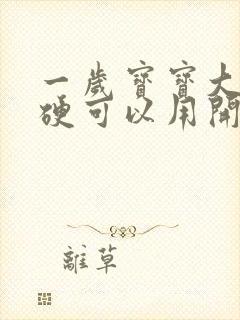 一歲寶寶大
硬可以用開
離草